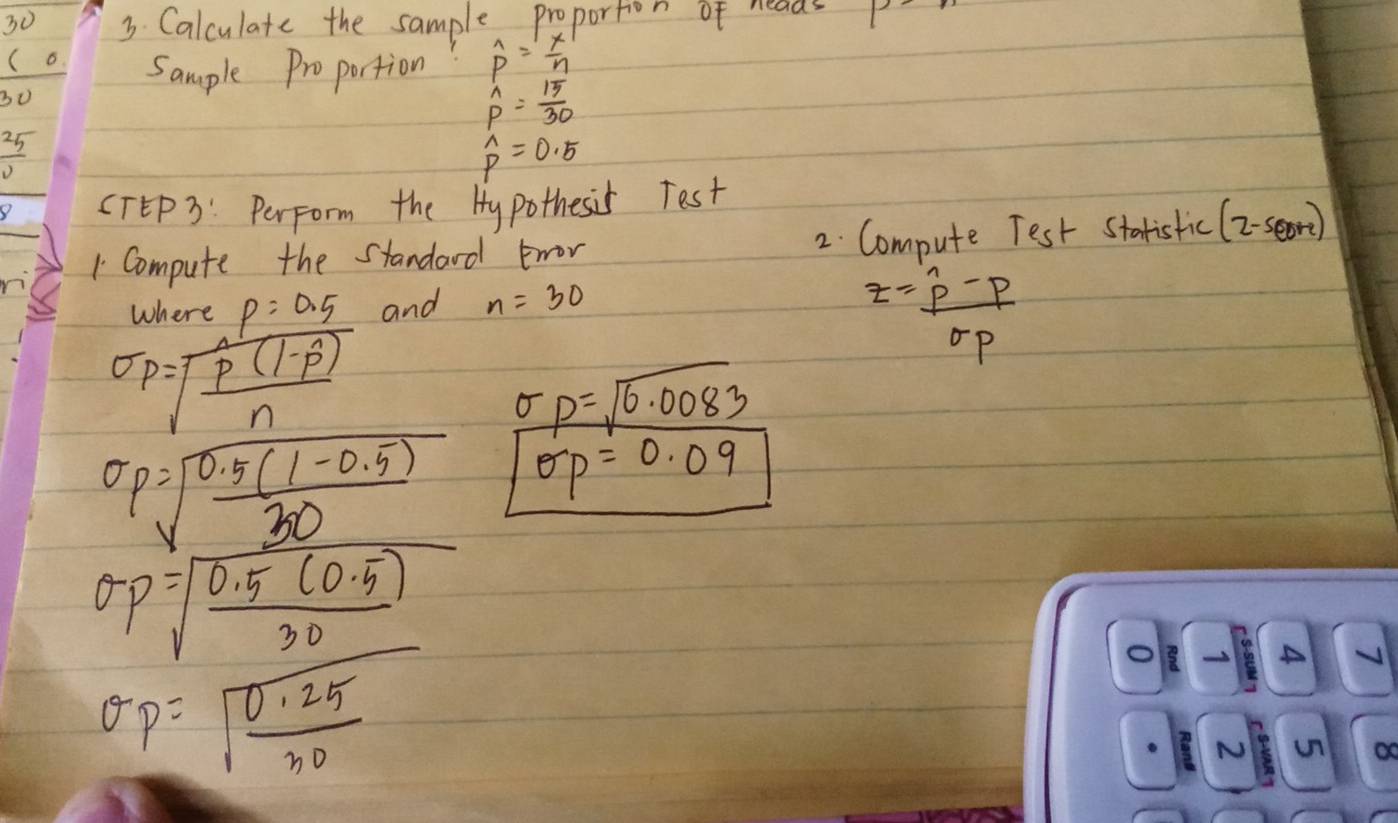 30
( 0.
30
25
0
8
ri
3. Calculate the sample proportion of heads
Sample Proportion: p̂ = x/n
p̂ = 15/30
p̂ = 0.5
STEP 3: Perform the Hypothesis Test
1. Compute the Standard Error
where p = 0.5 and n = 30
σp = √(p̂ (1-p̂)/n)
σp = √(0.5 (1-0.5)/30)
σp = √(0.5 (0.5)/30)
σp = √(0.25/30)
σp = √0.0083
σp = 0.09
2. Compute Test Statistic (z-score)
z = p̂ - p / σp
7
4
S-SUM
1
Rnd
0
8
5
S-VAR
2
Ran#
.